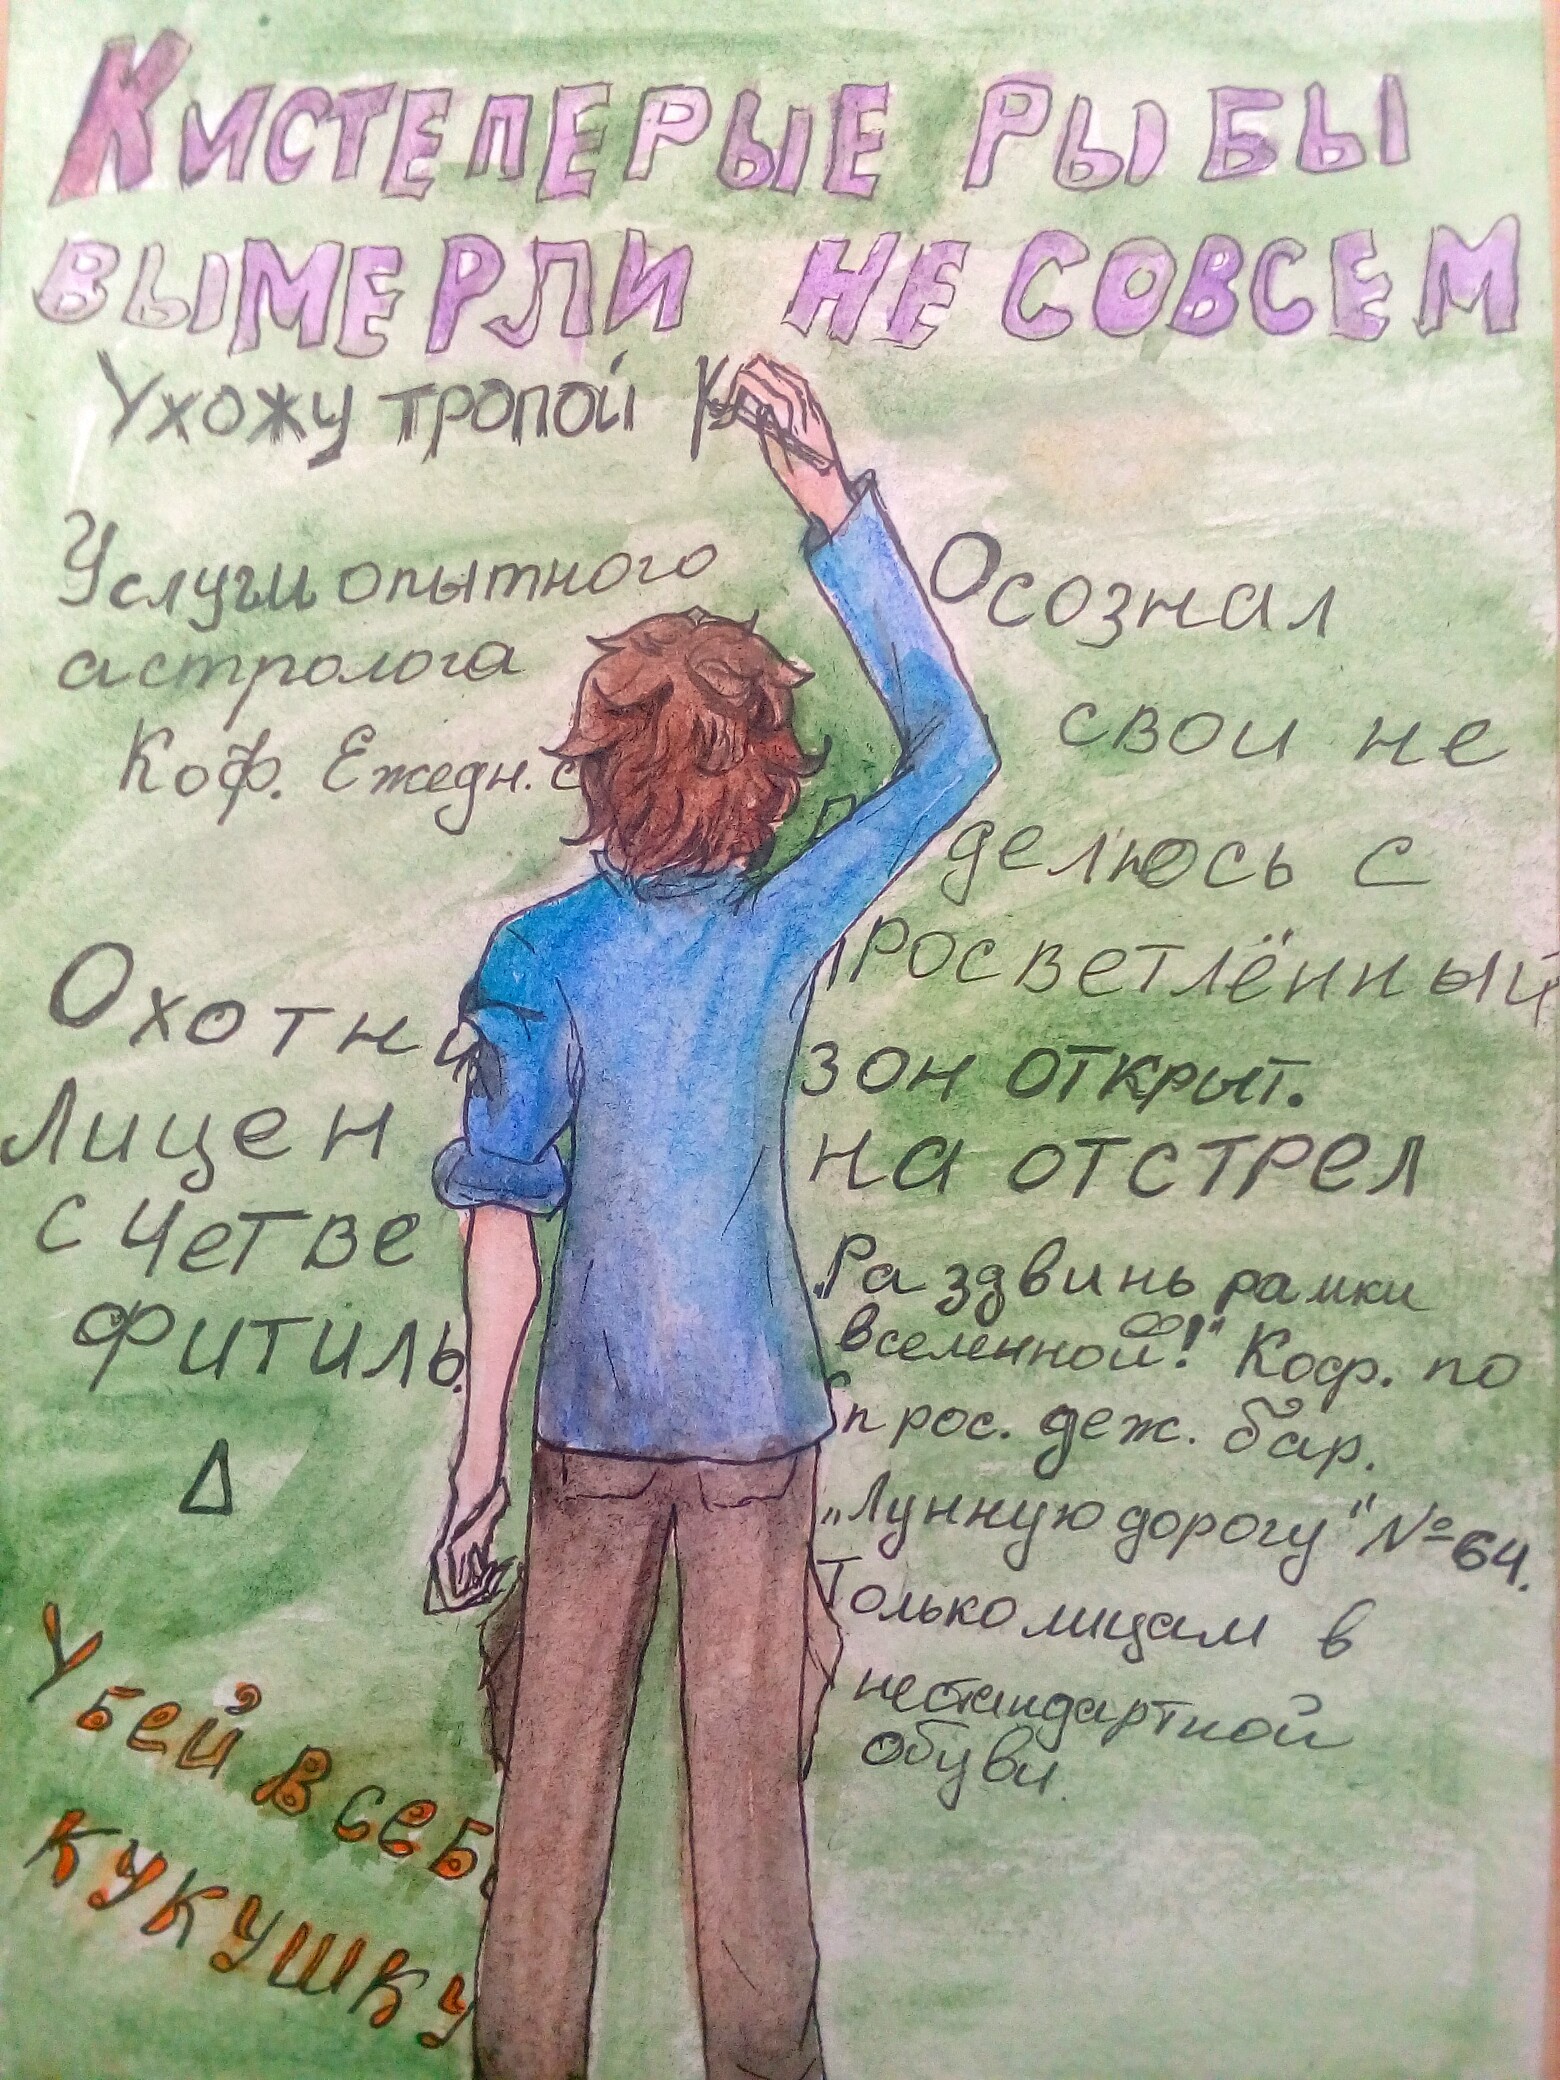 Кистеперые рыбы
вымерли не совсем
Ухожу тропой К
Услуги опытного
астролога
Коф. Ежедн. с
Охотни
Лицен
с Четве
фитиль.
Δ
Убей в себ
кукушку
Осознал
свои не
делюсь с
просветлённый
зон открыт.
на отстрел
„Раздвинь рамки
вселенной!" Коф. по
прос. деж. бар.
„Лунную дорогу" №64.
Только лицам в
нестандартной
обуви.